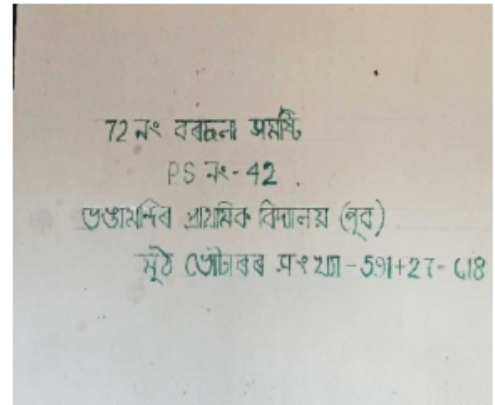 72 নং বৰছলা সমষ্টি
P.S নং-42.
ভঙামন্দিৰ প্ৰাথমিক বিদ্যালয় (পূব)
মুঠ ভোটাৰৰ সংখ্যা-591+27-618